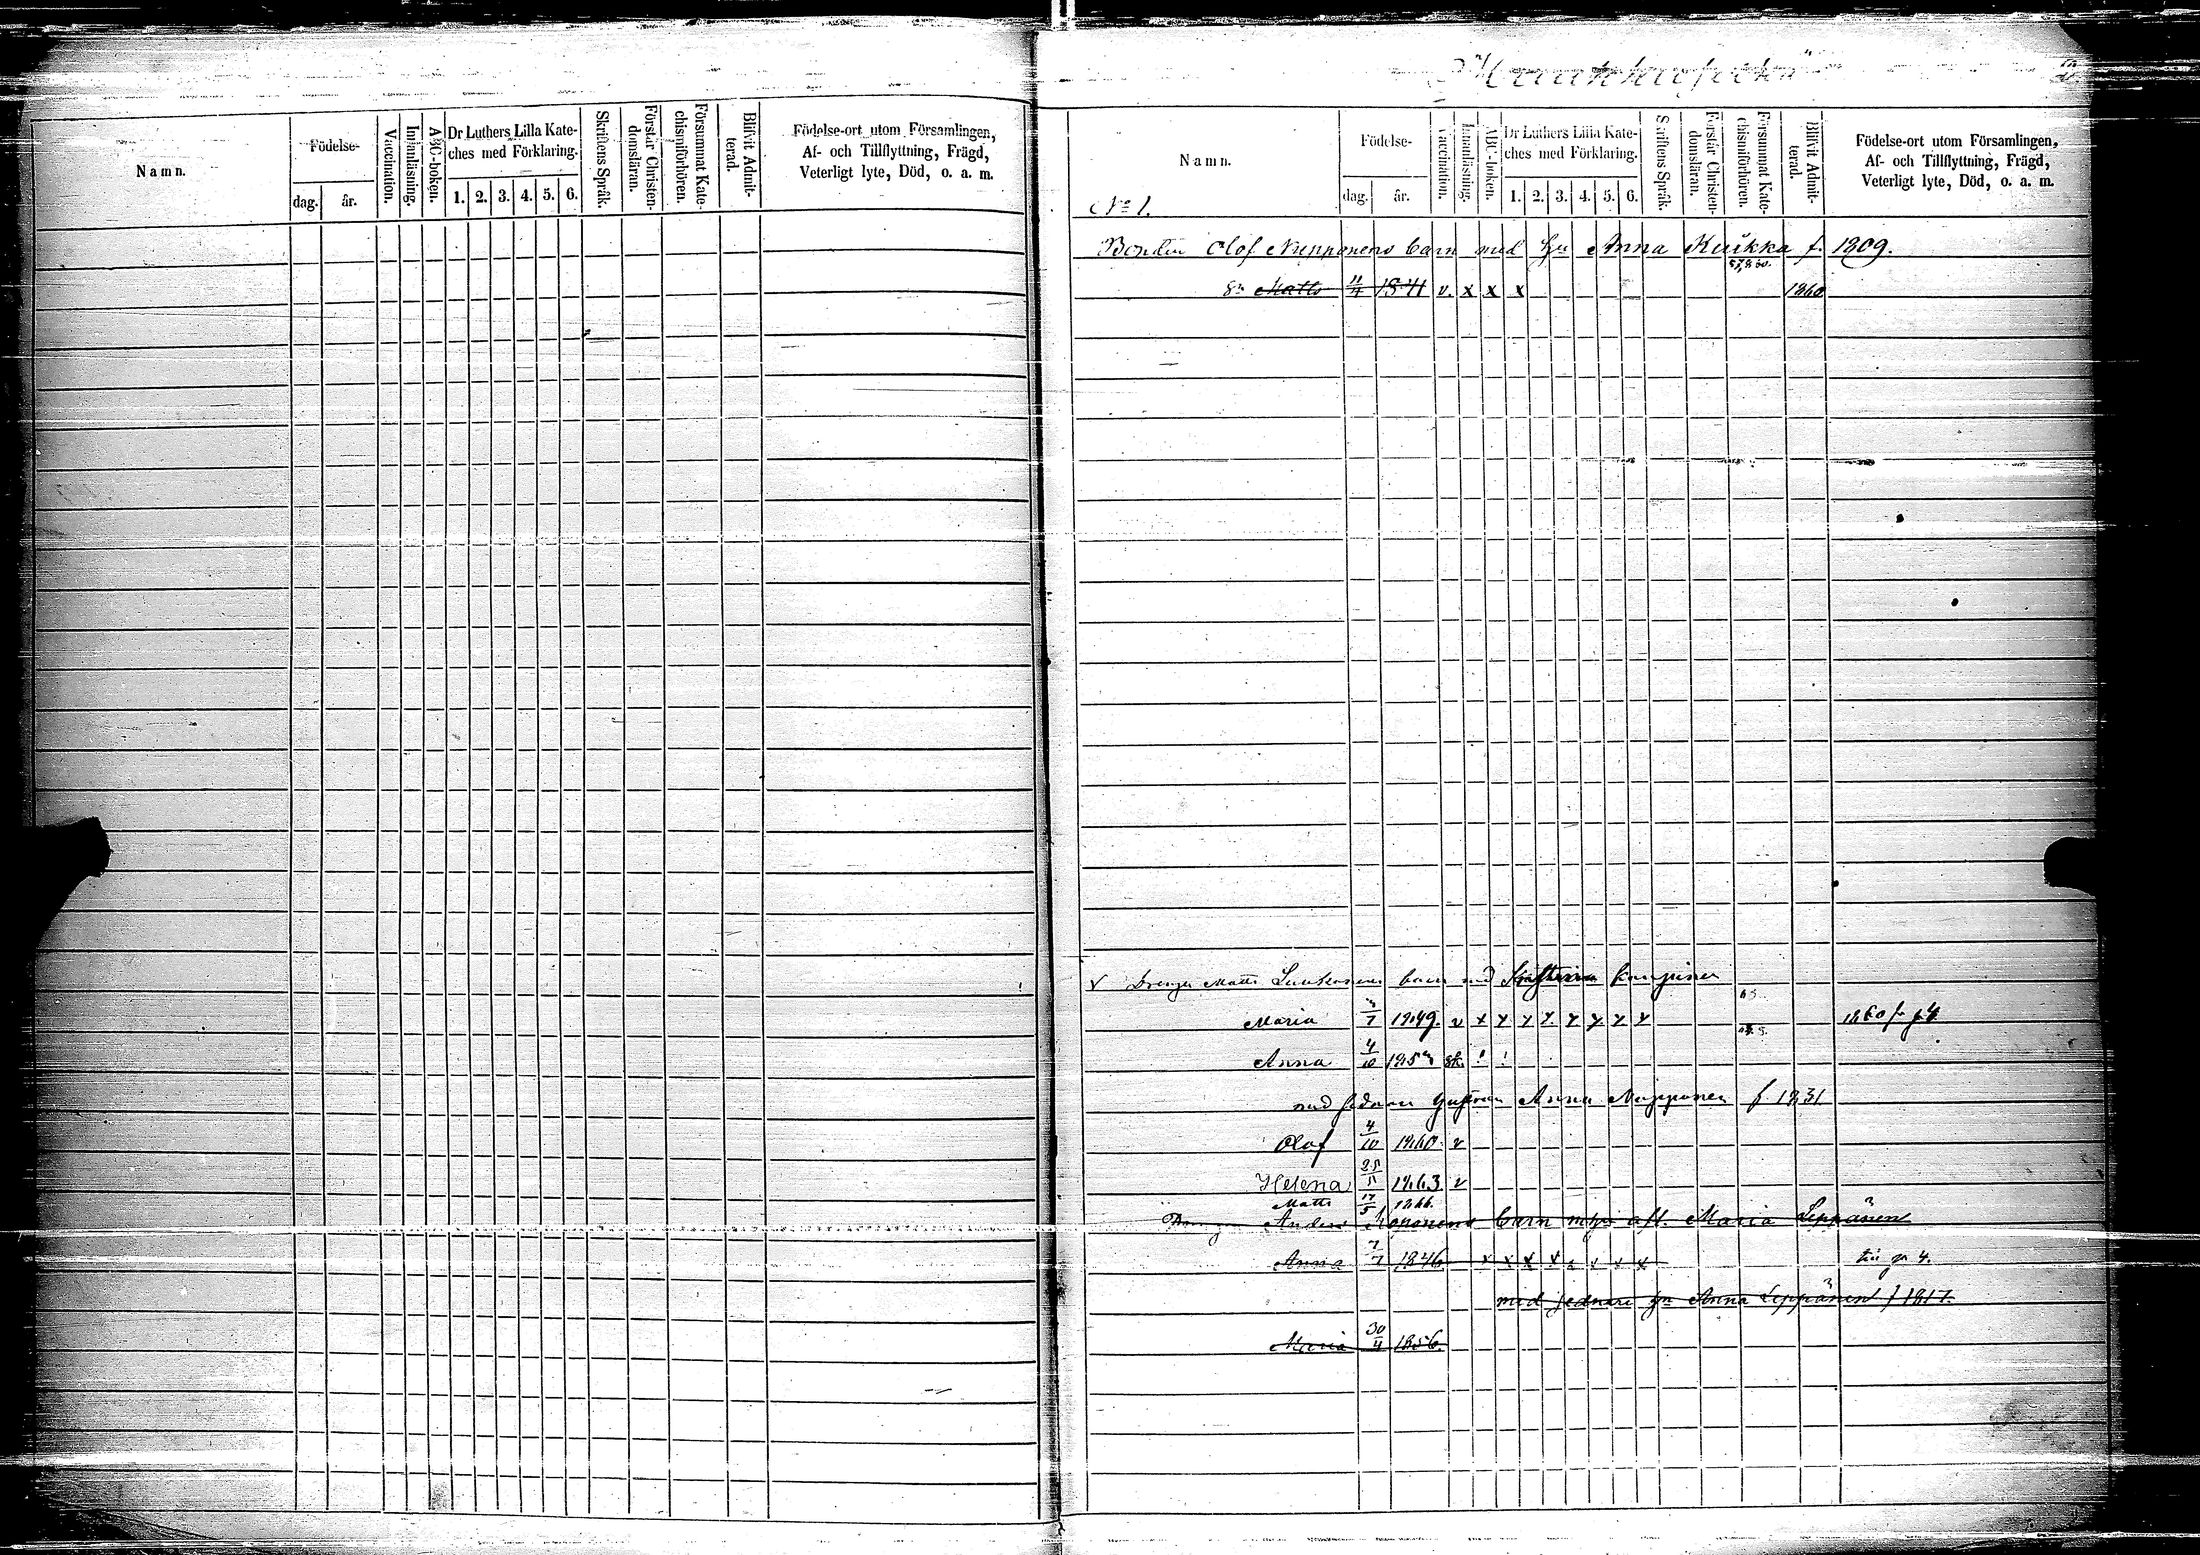 Namn.
Födelse-
dag. år.
Vaccination.
Innanläsning.
ABC-boken.
Dr Luthers Lilla Kate-
ches med Förklaring.
1. 2. 3. 4. 5. 6.
Skriftens Språk.
Förstår Christen-
domsläran.
Försummat Kate-
chismiförhören.
Blifvit Admit-
terad.
Födelse-ort utom Församlingen,
Af- och Tillflyttning, Frägd,
Veterligt lyte, Död, o. a. m.
Namn.
No 1.
Födelse-
dag. år.
Vaccination.
Innanläsning.
ABC-boken.
Dr Luthers Lilla Kate-
ches med Förklaring.
1. 2. 3. 4. 5. 6.
Skriftens Språk.
Förstår Christen-
domsläran.
Försummat Kate-
chismiförhören.
Blifvit Admit-
terad.
Födelse-ort utom Församlingen,
Af- och Tillflyttning, Frägd,
Veterligt lyte, Död, o. a. m.
Bonden Olof Nupponens barn med hu Anna Kuikka f. 1809.
Sn Matts 11/4 1841 v. x x x 1860
Matts barn med Kaupinen
Maria 1849. v x x x x x x x x
Anna 4/10
med sednare hustrun Anna Nupponen f 1831
Olof 4/10 1860. v
Helena 25/11 1863 v
Matts 17/5 1866.
Anders Roponens barn Maria Leppänen
Anna 7/7 1846 x x x x x x x x p. 4.
med sednare hu Anna Leppänen f 1817.
Maria 30/4 1856.